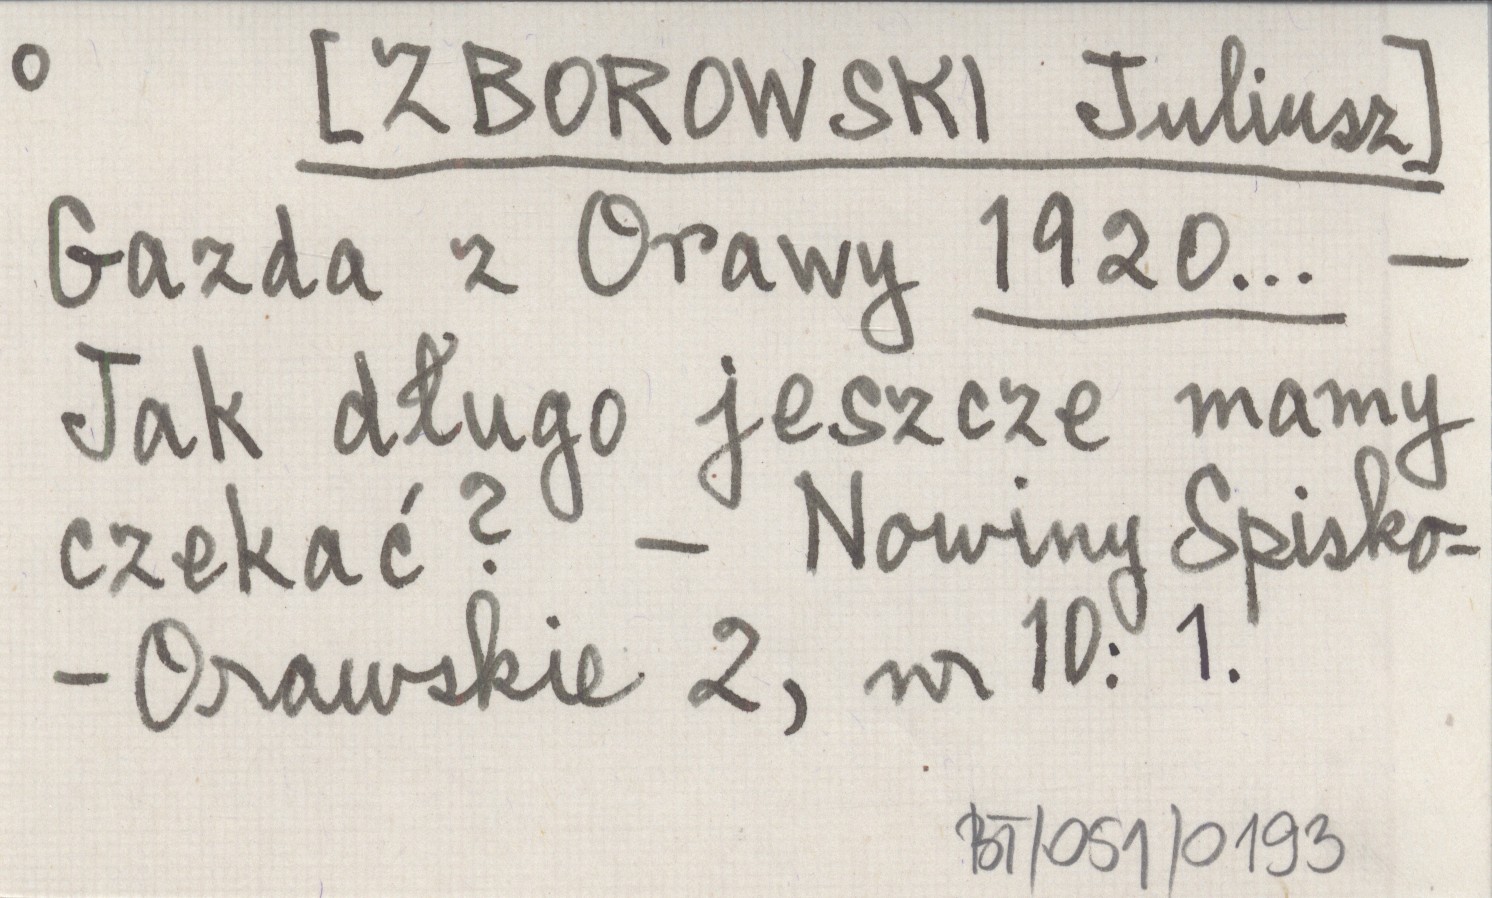 o [ZBOROWSKI Juliusz]
Gazda z Orawy 1920... –
Jak długo jeszcze mamy
czekać? – Nowiny Spisko-
-Orawskie 2, nr 10: 1.
BT/051/0193